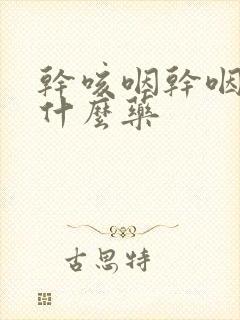 幹咳咽幹咽
什麼藥
古思特